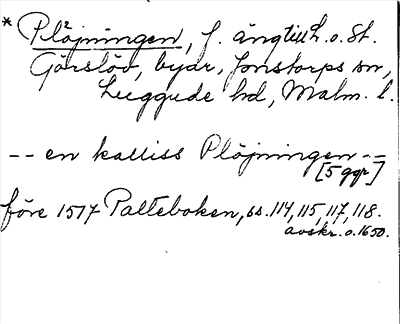 * Plöjningen, f. ängtill L. o. St.
Görslöv, byar, Jonstorps sn,
Luggude hd, Malm. l.
-- en kalliss Plöjningen --
[5 ggr]
före 1517 Palteboken, ss. 114, 115, 117, 118.
avskr. o. 1650.